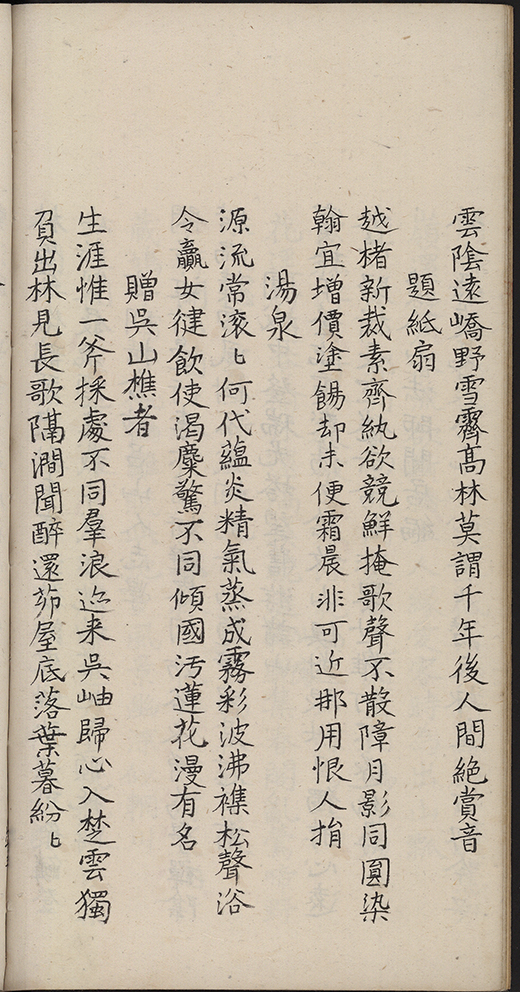 雲陰遠嶠野雪霽髙林莫謂千年後人間絶賞音
題紙扇
越楮新裁素齊紈欲競鮮掩歌聲不散障月影同圓染
翰宜増價塗餳却未便霜晨非可近那用恨人捐
湯泉
源流常滚〻何代藴炎精氣蒸成霧彩波沸襍松聲浴
令贏女徤飲使渴麋驚不同傾國汚蓮花漫有名
贈吳山樵者
生涯惟一斧採處不同羣浪迹来吳岫歸心入楚雲獨
負出林見長歌隔澗聞醉還茆屋底落葉暮紛〻